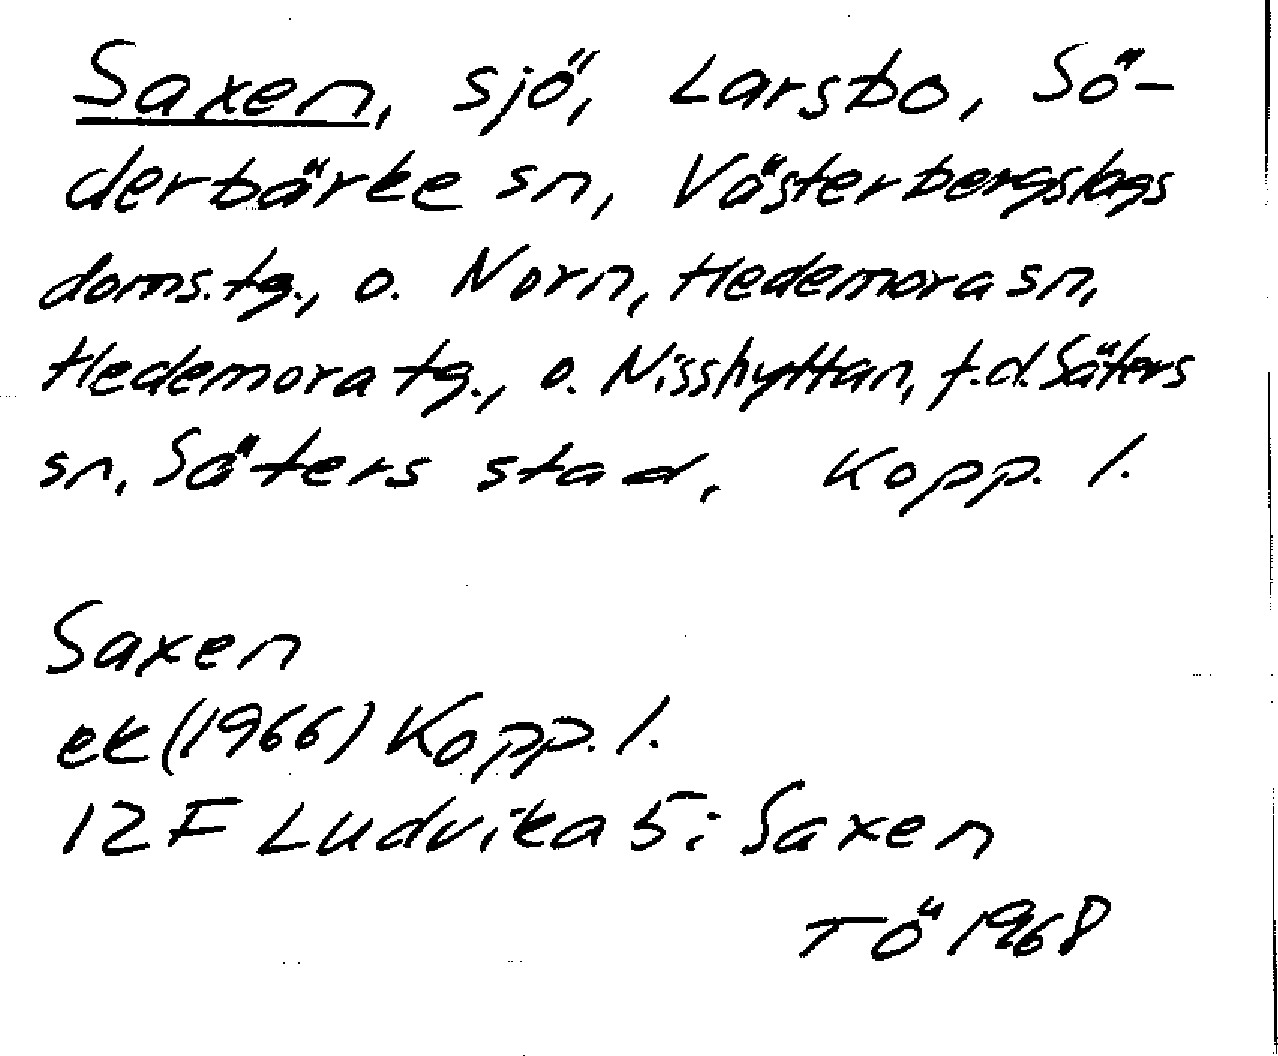 Saxen, sjö, Larsbo, Sö-
derbärke sn, Västerbergslags
doms.tg., o. Norn, Hedemora sn,
Hedemora tg., o. Nisshyttan, f.d. Säters
sn, Säters stad, Kopp. l.
Saxen
ek (1966) Kopp. l.
12 F Ludvika 5i Saxen
TÖ 1968